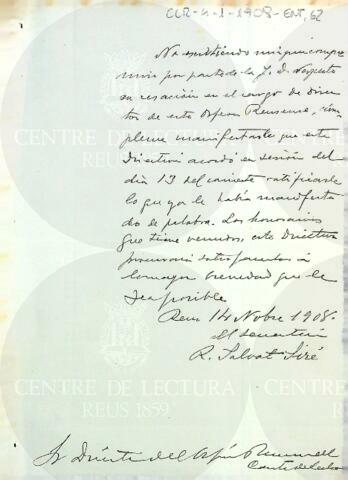 CLR-4-1-1908-ENT, 62
No existiendo ningun compro
miso por parte de la J. D. respecto
su cesación en el cargo de Direc
tor de este Orfeon Reusense, cúm
pleme manifestarle que esta
Directiva acordó en sesión del
día 13 del corriente ratificarle
lo que ya le había manifesta
do de palabra. Los honorarios
que tiene vencidos, esta Directiva
procurará satisfacerlos á
la mayor brevedad que le
sea posible
Reus 14 Nobre 1908.
El Secretario
R. Salvat Siré
Sr Director del Orfeón Reusense del
Centro de Lectura
CENTRE DE LECTURA
REUS 1859
CENTRE DE LECTURA
REUS 1859